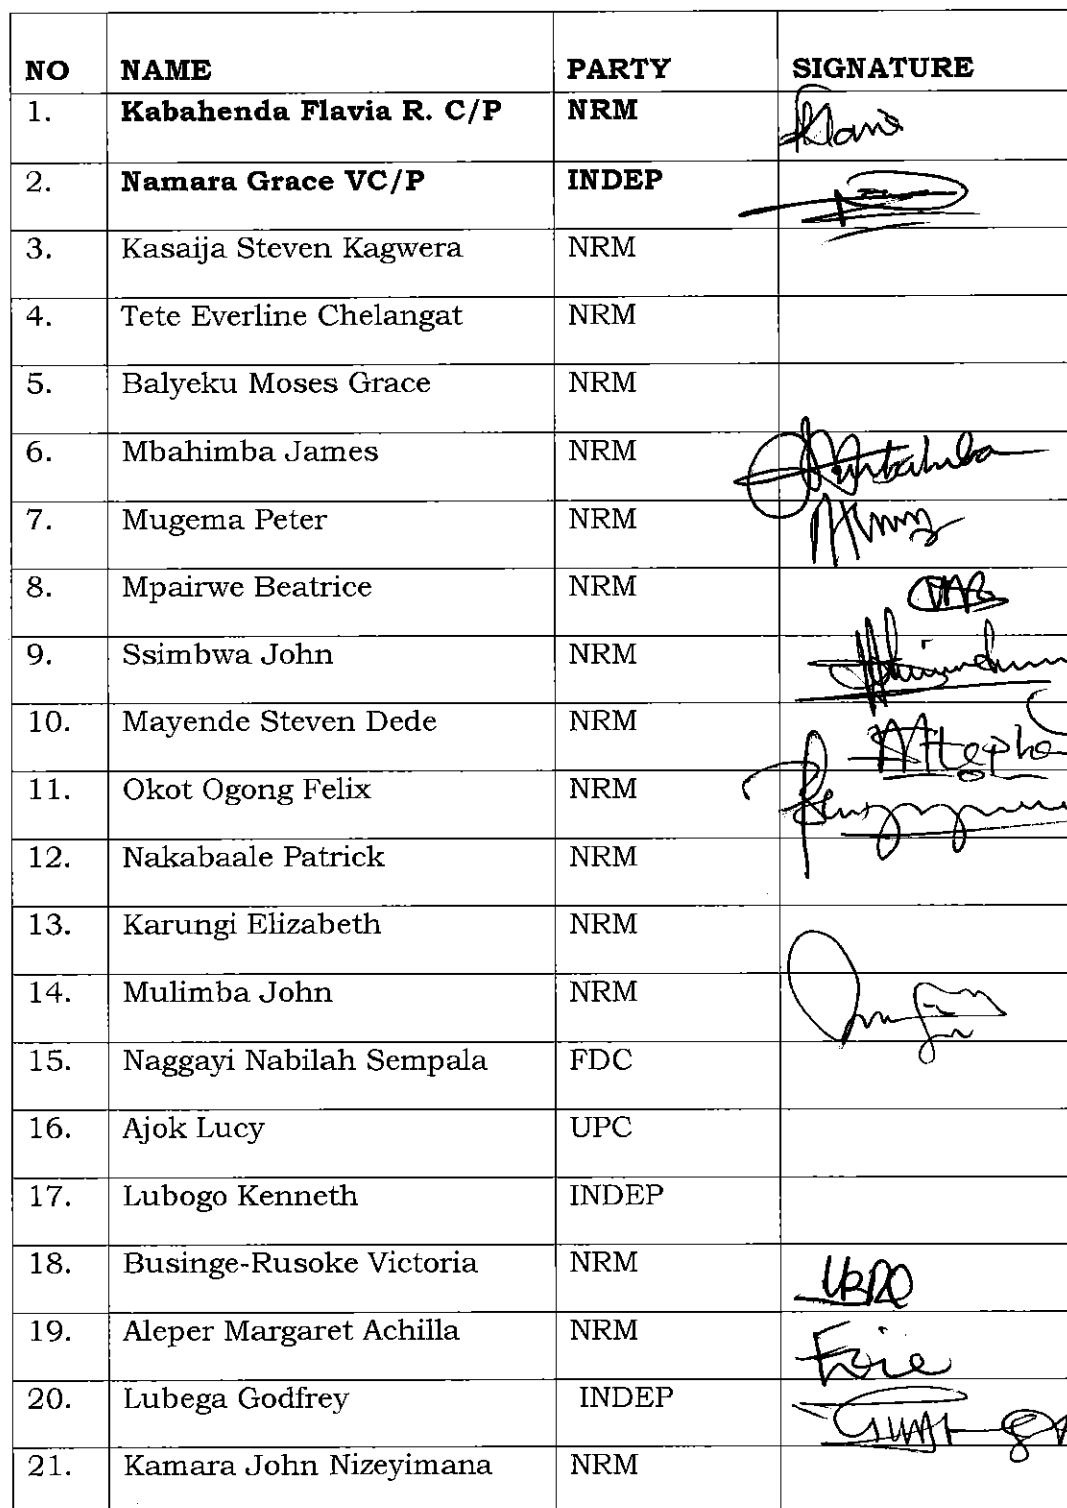 NO NAME PARTY SIGNATURE
1. Kabahenda Flavia R. C/P NRM
2. Namara Grace VC/P INDEP
3. Kasaija Steven Kagwera NRM
4. Tete Everline Chelangat NRM
5. Balyeku Moses Grace NRM
6. Mbahimba James NRM
7. Mugema Peter NRM
8. Mpairwe Beatrice NRM
9. Ssimbwa John NRM
10. Mayende Steven Dede NRM
11. Okot Ogong Felix NRM
12. Nakabaale Patrick NRM
13. Karungi Elizabeth NRM
14. Mulimba John NRM
15. Naggayi Nabilah Sempala FDC
16. Ajok Lucy UPC
17. Lubogo Kenneth INDEP
18. Businge-Rusoke Victoria NRM
19. Aleper Margaret Achilla NRM
20. Lubega Godfrey INDEP
21. Kamara John Nizeyimana NRM